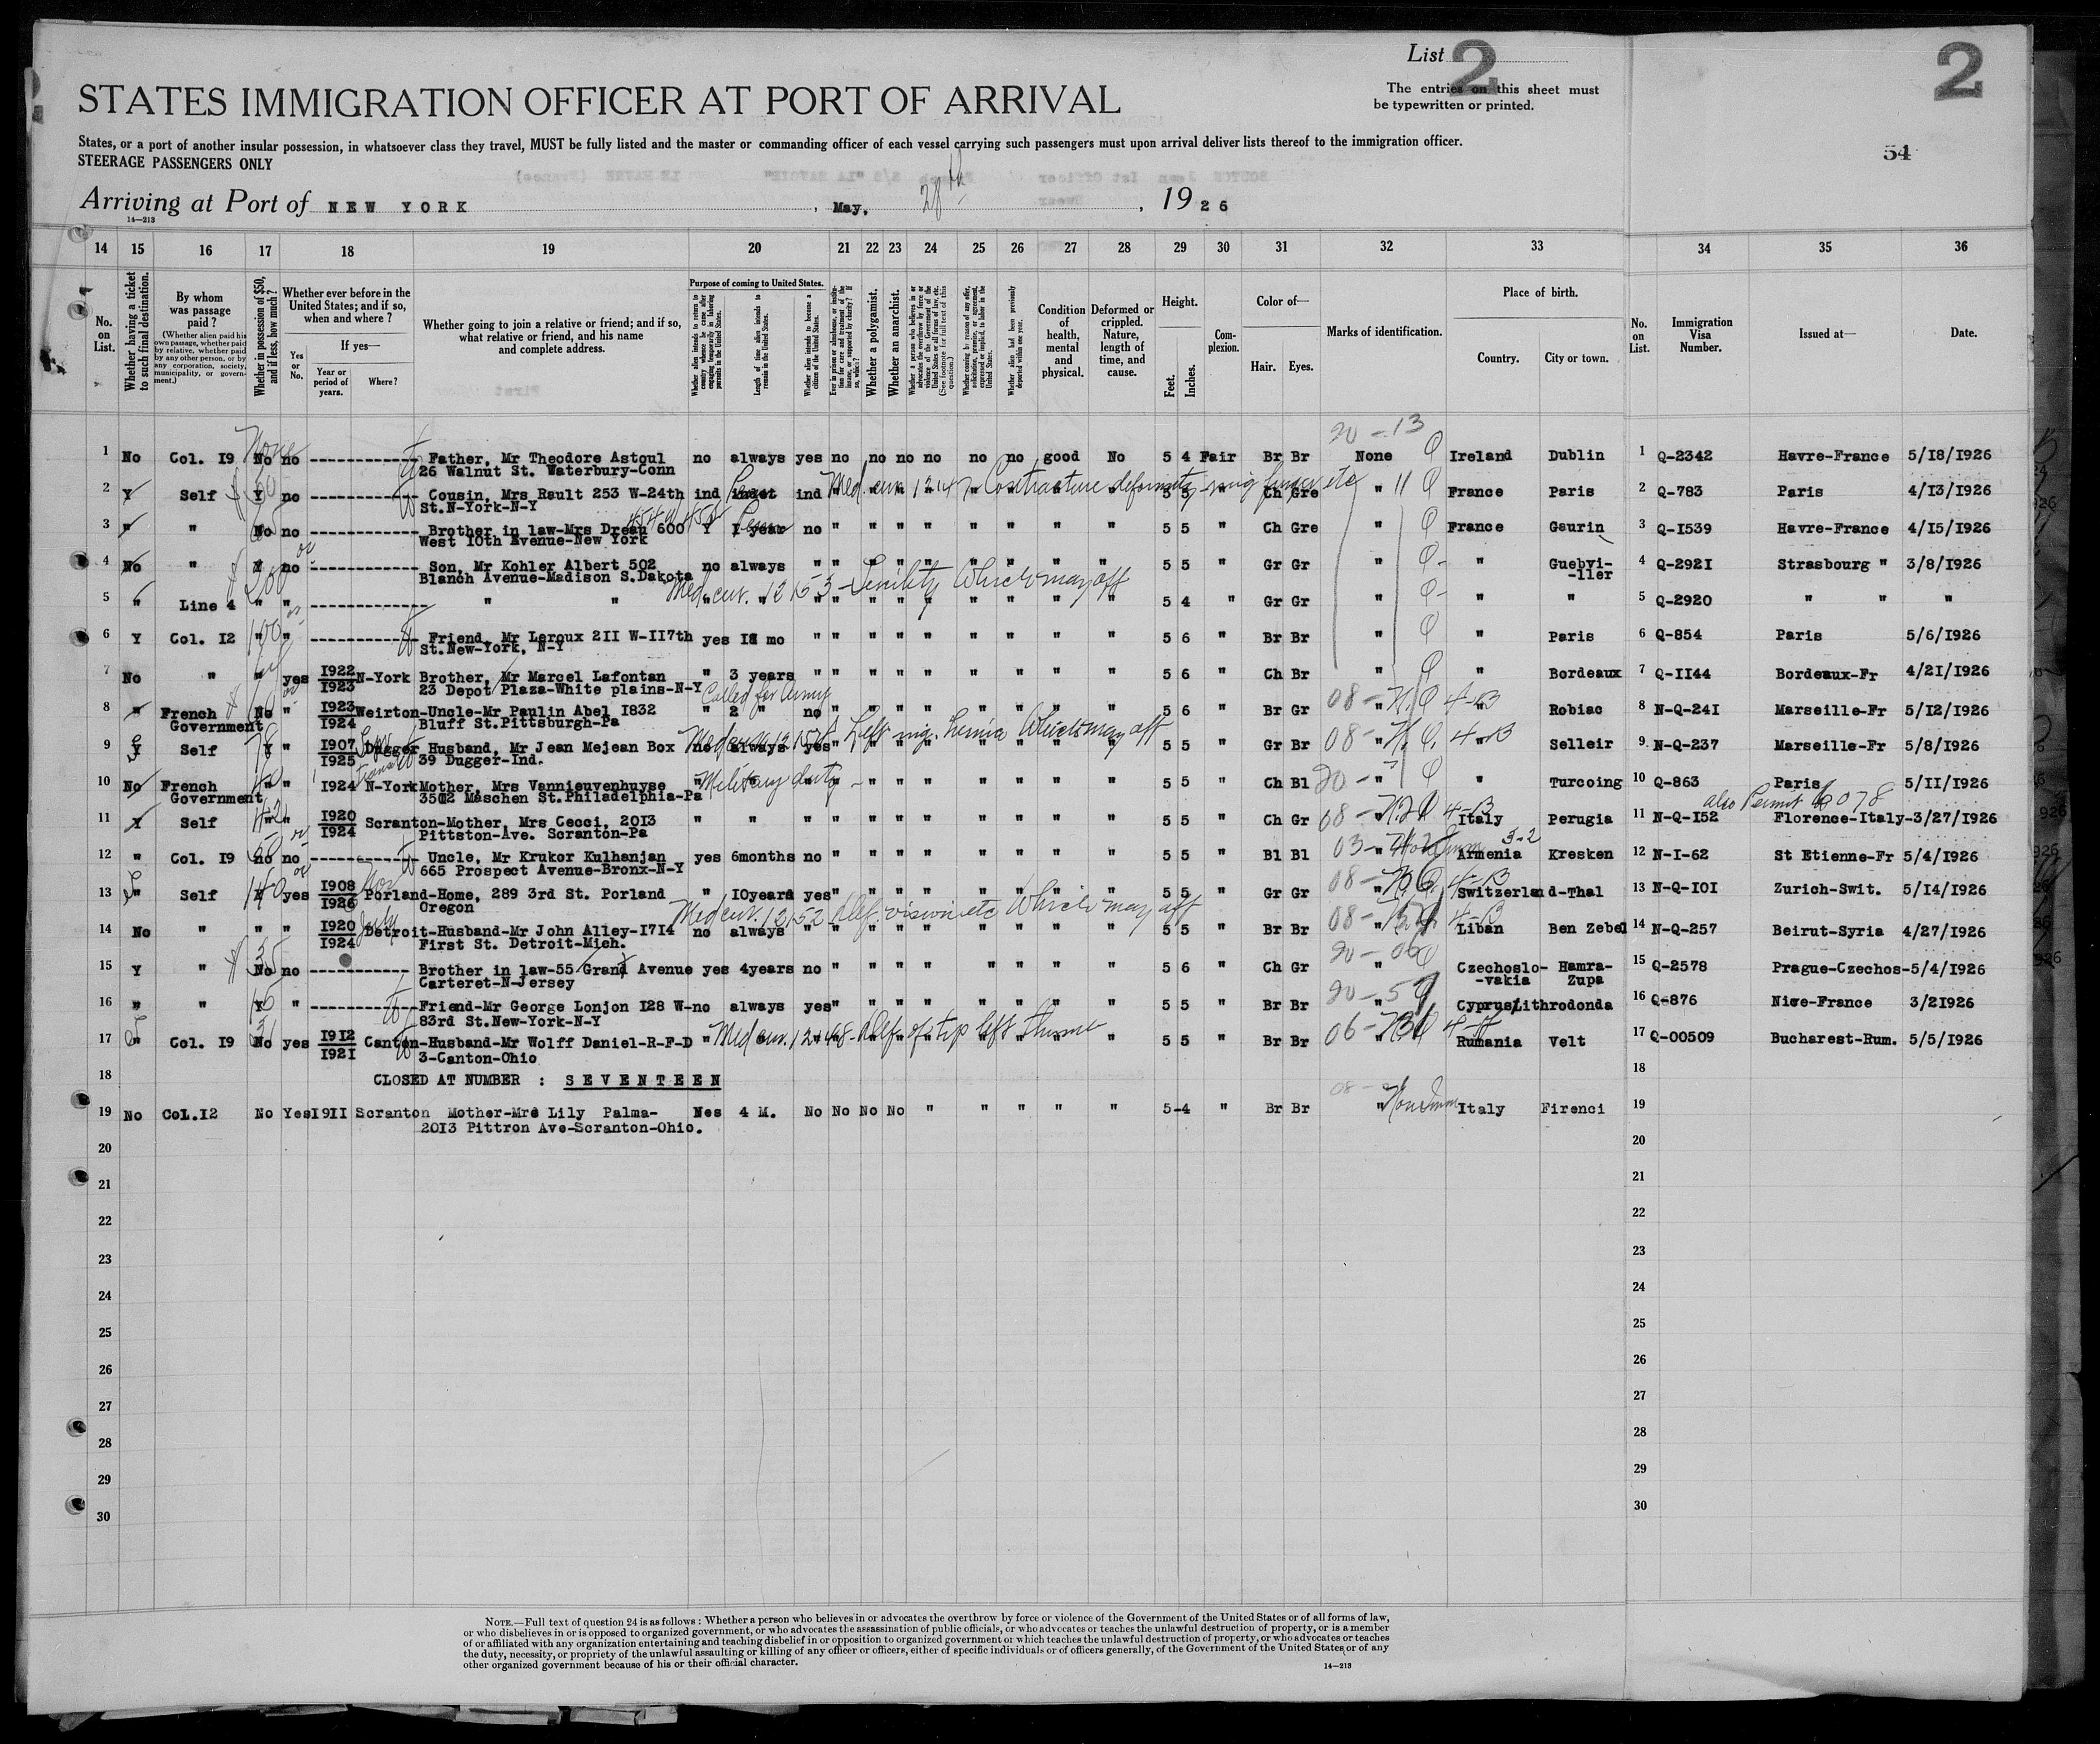 List 2
2
The entries on this sheet must
be typewritten or printed.
STATES IMMIGRATION OFFICER AT PORT OF ARRIVAL
States, or a port of another insular possession, in whatsoever class they travel, MUST be fully listed and the master or commanding officer of each vessel carrying such passengers must upon arrival deliver lists thereof to the immigration officer.
STEERAGE PASSENGERS ONLY
54
Arriving at Port of NEW YORK, May, 28th, 1926
14—213
14 15 16 17 18 19 20 21 22 23 24 25 26 27 28 29 30 31 32 33 34 35 36
No. on List.
Whether having a ticket to such final destination.
By whom was passage paid?
(Whether alien paid his own passage, whether paid by relative, whether paid by any other person, or by any corporation, society, municipality, or government.)
Whether in possession of $50, and if less, how much?
Whether ever before in the United States; and if so, when and where?
Yes or No.
If yes—
Year or period of years.
Where?
Whether going to join a relative or friend; and if so, what relative or friend, and his name and complete address.
Purpose of coming to United States.
Whether alien intends to return to country whence he came after engaging temporarily in laboring pursuits in the United States.
Length of time alien intends to remain in the United States.
Whether alien intends to become a citizen of the United States.
Whether a polygamist.
Whether an anarchist.
Condition of health, mental and physical.
Deformed or crippled. Nature, length of time, and cause.
Height.
Feet. Inches.
Complexion.
Color of—
Hair. Eyes.
Marks of identification.
Place of birth.
Country. City or town.
No. on List.
Immigration Visa Number.
Issued at—
Date.
20-13
1 No Col. 19 No no ------------ Father, Mr Theodore Astoul no always yes no no no no no no good No 5 4 Fair Br Br None Ireland Dublin 1 Q-2342 Havre-France 5/18/1926
26 Walnut St. Waterbury-Conn
2 Y Self Y no ------------ Cousin, Mrs Rault 253 W-24th ind indet ind " " " " " " " " 5 5 " Ch Gre " France Paris 2 Q-783 Paris 4/13/1926
St.N-York-N-Y
3 " " No no ------------ Brother in law-Mrs Drean 600 Y 1 year no " " " " " " " " 5 5 " Ch Gre " France Gourin 3 Q-1539 Havre-France 4/15/1926
West 10th Avenue-New York
4 No " Y no ------------ Son, Mr Kohler Albert 502 no always " " " " " " " " " 5 5 " Gr Gr " " Guebvi- 4 Q-2921 Strasbourg " 3/8/1926
Blanch Avenue-Madison S.Dakota -ller
Med cert. 12153 - Senility which may aff
5 " Line 4 " " ------------ " " " " " " " " " " " " " 5 4 " Gr Gr " " " 5 Q-2920 " " "
6 Y Col. 12 " " ------------ Friend, Mr Leroux 211 W-117th yes mo " " " " " " " " " 5 6 " Br Br " " Paris 6 Q-854 Paris 5/6/1926
St.New-York, N-Y
7 No " " yes 1922 1923 N-York Brother, Mr Marcel Lafontan " 3 years " " " " " " " " " 5 6 " Ch Br " " Bordeaux 7 Q-1144 Bordeaux-Fr 4/21/1926
23 Depot Plaza-White plains-N-Y
Called for Army
8 " French No " 1923 1924 Weirton-Uncle-Mr Paulin Abel 1832 " 2 " no " " " " " " " " 5 6 " Br Gr 08- 4-B " Robiac 8 N-Q-241 Marseille-Fr 5/12/1926
Government Bluff St.Pittsburgh-Pa
9 Y Self Y " 1907 1925 Dugger Husband, Mr Jean Mejean Box no always yes " " " " " " " " 5 5 " Gr Br 08- 4-B " Selleir 9 N-Q-237 Marseille-Fr 5/8/1926
39 Dugger-Ind.
10 No French " " 1924 N-York Mother, Mrs Vannieuvenhuyse Military duty 5 5 " Ch Bl 20- " " Turcoing 10 Q-863 Paris 5/11/1926
Government 3502 Maschen St.Philadelphia-Pa
also Permit
11 Y Self " " 1920 1924 Scranton-Mother, Mrs Cecci, 2013 " " " " " " " " " " " 5 5 " Ch Gr 08- 4-B Italy Perugia 11 N-Q-152 Florence-Italy-3/27/1926
Pittston-Ave. Scranton-Pa
12 " Col. 19 no no ------------ Uncle, Mr Krukor Kulhanjan yes 6months no " " " " " " " " 5 5 " Bl Bl 03- 3-2 Armenia Kresken 12 N-I-62 St Etienne-Fr 5/4/1926
665 Prospect Avenue-Bronx-N-Y
13 " Self Y yes 1908 1926 Porland-Home, 289 3rd St. Porland " 10years yes " " " " " " " " 5 5 " Gr Gr 08- 4-B Switzerland-Thal 13 N-Q-101 Zurich-Swit. 5/14/1926
Oregon
Med cert. 12152 Def. vision etc which may aff
14 No " " " 1920 1924 Detroit-Husband-Mr John Alley-1714 no always " " " " " " " " " 5 5 " Br Br 08- 4-B Liban Ben Zebed 14 N-Q-257 Beirut-Syria 4/27/1926
First St. Detroit-Mich.
15 Y " No no ------------ Brother in law-55 Grand Avenue yes 4years no " " " " " " " " 5 6 " Ch Gr " Czechoslo- Hamra- 15 Q-2578 Prague-Czechos-5/4/1926
Carteret-N-Jersey -vakia Zupa
16 " " Y " ------------ Friend-Mr George Lonjon 128 W- no always yes " " " " " " " " 5 5 " Br Br " Cyprus/Lithrodonda 16 Q-876 Nice-France 3/21926
83rd St.New-York-N-Y
17 " Col. 19 No yes 1912 1921 Canton-Husband-Mr Wolff Daniel-R-F-D " Med cert. 12148- Def. of tip left thumb 5 5 " Br Br 06- " Rumania Velt 17 Q-00509 Bucharest-Rum. 5/5/1926
3-Canton-Ohio
18 CLOSED AT NUMBER : SEVENTEEN 18
19 No Col.12 No Yes 1911 Scranton Mother-Mrs Lily Palma- 4 M. No No No No " " " " " 5-4 " Br Br " Italy Firenci 19
2013 Pittron Ave-Scranton-Ohio.
20 20
21 21
22 22
23 23
24 24
25 25
26 26
27 27
28 28
29 29
30 30
NOTE.—Full text of question 24 is as follows: Whether a person who believes in or advocates the overthrow by force or violence of the Government of the United States or of all forms of law,
or who disbelieves in or is opposed to organized government, or who advocates the assassination of public officials, or who advocates or teaches the unlawful destruction of property, or is a member
of or affiliated with any organization entertaining and teaching disbelief in or opposition to organized government or which teaches the unlawful destruction of property, or who advocates or teaches
the duty, necessity, or propriety of the unlawful assaulting or killing of any officer or officers, either of specific individuals or of officers generally, of the Government of the United States or of any
other organized government because of his or their official character.
14—213